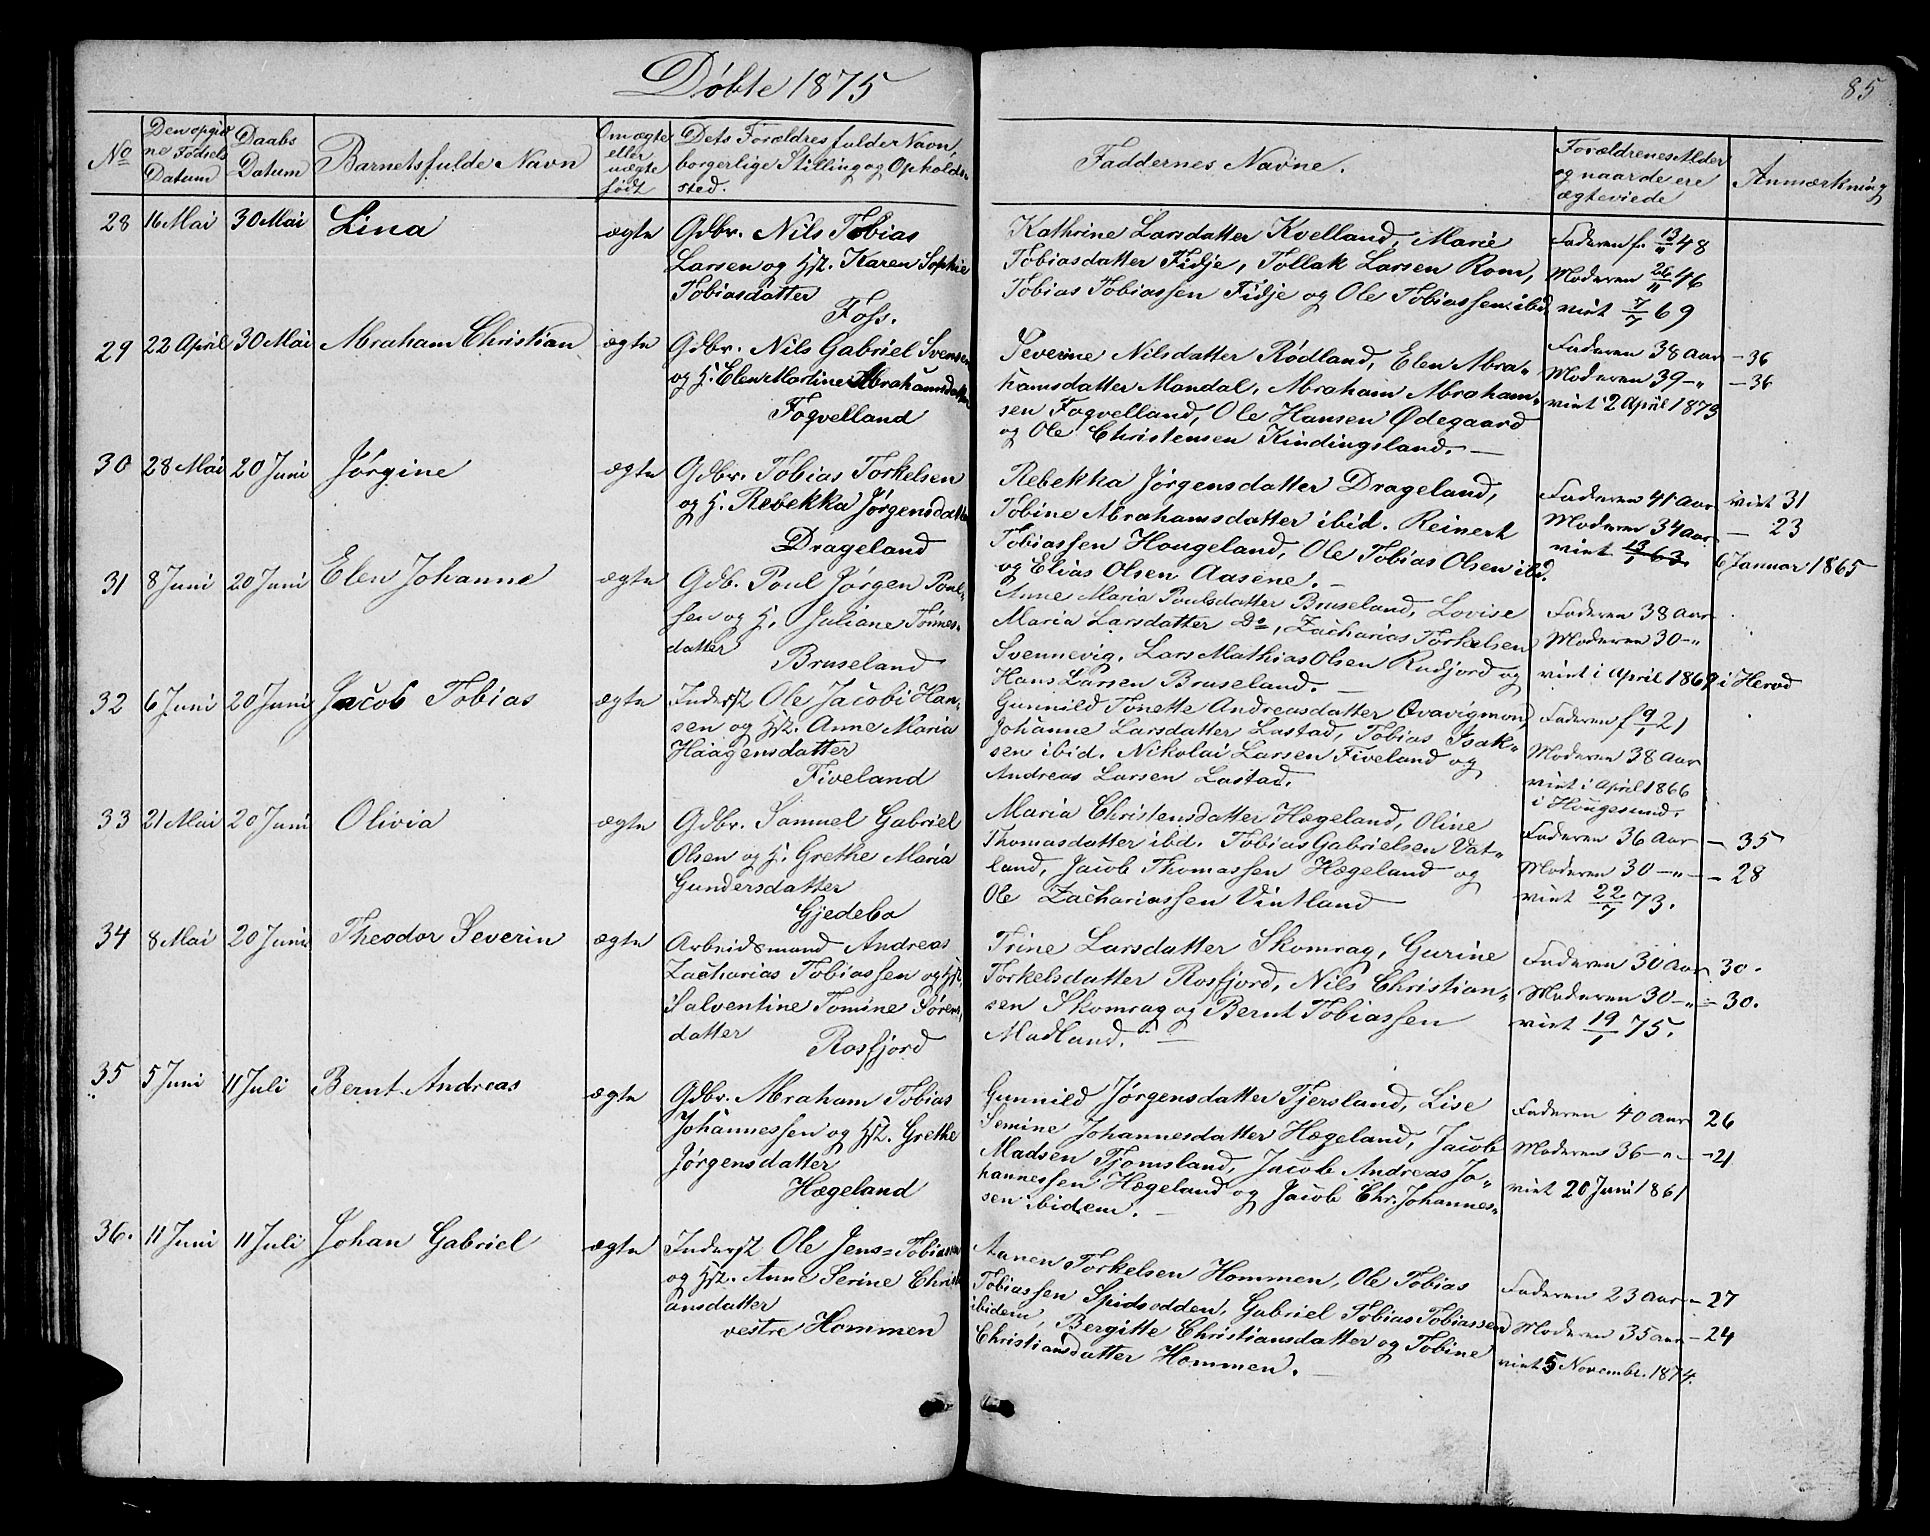 Døbte 1875
85
No
Den opgiv
ne Fødsels
Datum
Daabs
Datum
Barnets fulde Navn
Om ægte
eller
uægte
født
Dets Forældres fulde Navn,
borgerlige Stilling og Opholds-
sted.
Faddernes Navne.
Forældrenes Alder
og naar de ere
ægteviede
Anmærkning
28 16 Mai 30 Mai Lina ægte
Gdbr. Nils Tobias
Larsen og Hst. Karen Sophie
Tobiasdatter
Foss.
Kathrine Larsdatter Kvelland, Marie
Tobiasdatter Fidje, Tollak Larsen Rom,
Tobias Tobiassen Fidje og Ole Tobiassen ibid
Faderen f. 13/11 48
Moderen 26/11 46
viet 7/7 69
29 22 April 30 Mai Abraham Christian ægte
Gdbr. Nils Gabriel Svensen
og H. Elen Martine Abrahamsdatter
Foqvelland
Severine Nilsdatter Rødland, Elen Abra-
hamsdatter Mandal, Abraham Abraham-
sen Foqvelland, Ole Hansen Ødegaard
og Ole Christensen Kindingsland.
Faderen 38 Aar - 36
Moderen 39 -"- 36
viet 2 April 1873
30 28 Mai 20 Juni Jørgine ægte
Gdbr. Tobias Torkelsen
og H. Rebekka Jørgensdatter
Drageland
Rebekka Jørgensdatter Drageland,
Tobine Abrahamsdatter ibid. Reinert
Tobiassen Hougeland, Ole Tobias Olsen ibd.
og Elias Olsen Aasene.
Faderen 41 Aar viet 31
Moderen 34 Aar - 23
viet 13/1 63. 6 Januar 1865
31 8 Juni 20 Juni Elen Johanne ægte
Gdb. Poul Jørgen Poul-
sen og H. Juliane Tønnes-
datter
Bruseland
Anne Maria Poulsdatter Bruseland, Lovise
Maria Larsdatter Do, Zacharias Torkelsen
Svennevig, Lars Mathias Olsen Rudjord og
Hans Larsen Bruseland.
Faderen 38 Aar
Moderen 30 -"
viet i April 1869 i Herad
32 6 Juni 20 Juni Jacob Tobias ægte
Inderst Ole Jacobi Han-
sen og Hst. Anne Maria
Haagensdatter
Fiveland
Gunnild Tonette Andreasdatter Qvavigmon,
Johanne Larsdatter Lastad, Tobias Isak-
sen ibid. Nikolai Larsen Fiveland og
Andreas Larsen Lastad.
Faderen f 9/1 21
Moderen 38 Aar
viet i April 1866
i Hougesund.
33 21 Mai 20 Juni Olivia ægte
Gdbr. Samuel Gabriel
Olsen og H. Grethe Maria
Gundersdatter
Gjedebo
Maria Christensdatter Hægeland, Oline
Thomasdatter ibd. Tobias Gabrielsen Vat-
land, Jacob Thomassen Hægeland og
Ole Zachariassen Vintland
Faderen 36 Aar - 35
Moderen 30 -"- - 28
viet 22/7 73.
34 8 Mai 20 Juni Theodor Severin ægte
Arbeidsmand Andreas
Zacharias Tobiassen og Hst.
Salventine Tomine Sørens-
datter
Rosfjord
Trine Larsdatter Skomrag, Gurine
Torkelsdatter Rosfjord, Nils Christian-
sen Skomrag og Bernt Tobiassen
Madland.
Faderen 30 Aar 30.
Moderen 30 -"- 30.
viet 19/1 75.
35 5 Juni 11 Juli Bernt Andreas ægte
Gdbr. Abraham Tobias
Johannessen og Hst. Grethe
Jørgensdatter
Hægeland
Gunnild Jørgensdatter Tjersland, Lise
Semine Johannesdatter Hægeland, Jacob
Madsen Tjomsland, Jacob Andreas Jo-
hannessen Hægeland og Jacob Chr. Johannes-
sen ibidem.
Faderen 40 Aar 26
Moderen 36 -"- 21
viet 20 Juni 1861
36. 11 Juni 11 Juli Johan Gabriel ægte
Inderst Ole Jens=Tobiassen
og Hst. Anne Serine Christi
ansdatter
vestre Hommen
Aanen Torkelsen Hommen, Ole Tobias
Tobiassen Spidsodden, Gabriel Tobias Tobiassen
ibidem, Bergitte Christiansdatter og Tobine
Christiansdatter Hommen.
Faderen 23 Aar - 27
Moderen 35 Aar - 24
viet 5 Novembr. 1874.